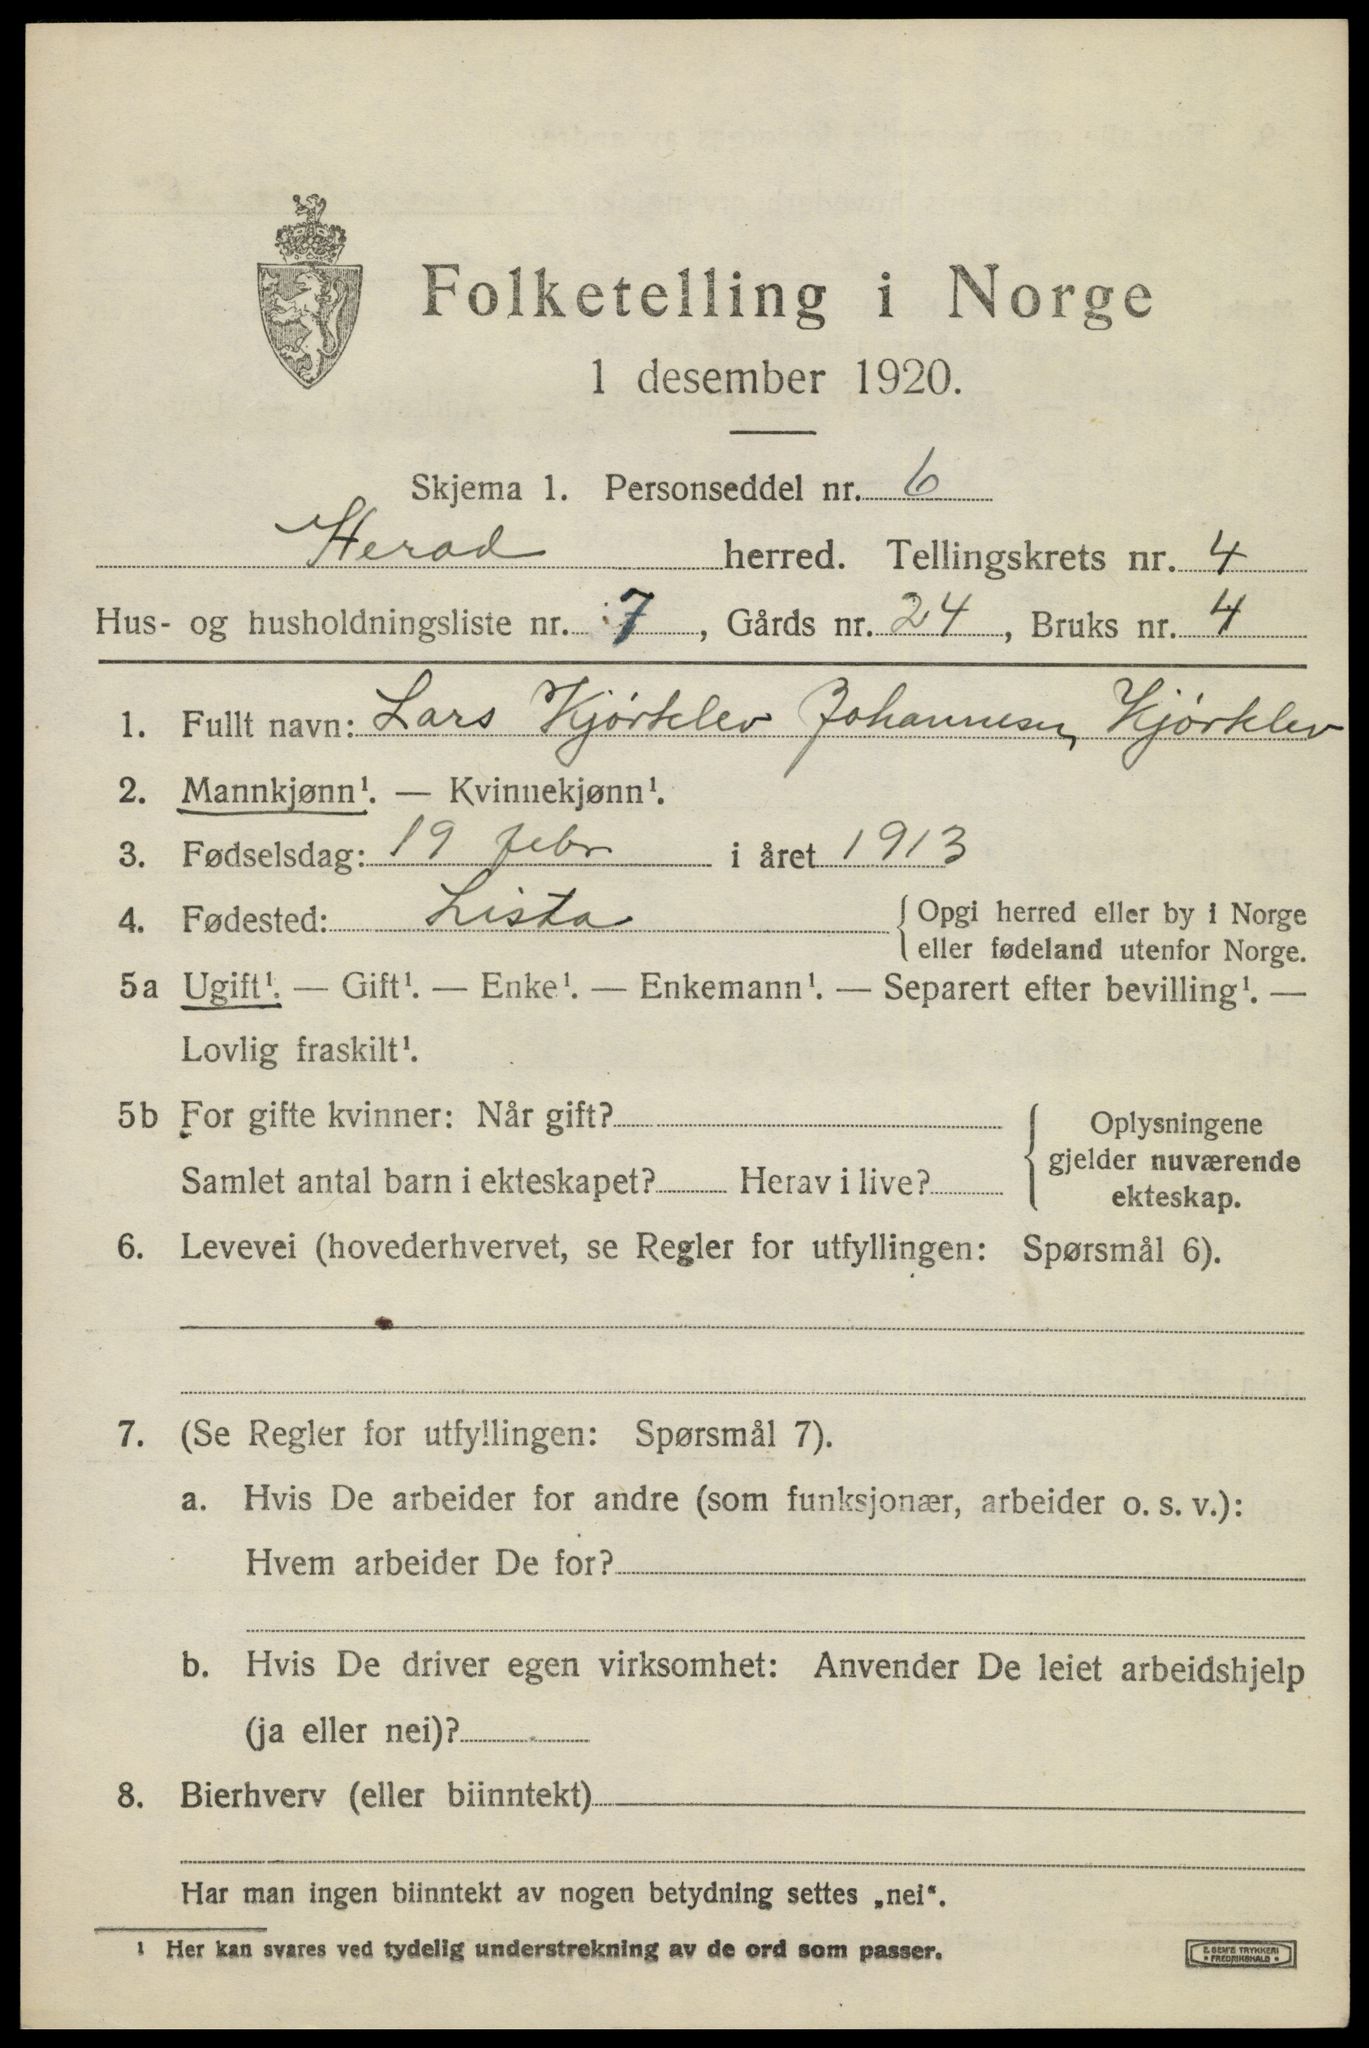 Folketelling i Norge
1 desember 1920.
Skjema 1. Personseddel nr. 6
Herad herred. Tellingskrets nr. 4
Hus- og husholdningsliste nr. 7, Gårds nr. 24, Bruks nr. 4
1. Fullt navn: Lars Kjørklev Johannesen Kjørklev
2. Mannkjønn¹. — Kvinnekjønn¹.
3. Fødselsdag: 19 febr i året 1913
4. Fødested: Lista { Opgi herred eller by i Norge
eller fødeland utenfor Norge.
5a Ugift¹. — Gift¹. — Enke¹. — Enkemann¹. — Separert efter bevilling¹. —
Lovlig fraskilt¹.
5b For gifte kvinner: Når gift?
Samlet antal barn i ekteskapet? Herav i live?
{ Oplysningene
gjelder nuværende
ekteskap.
6. Levevei (hovederhvervet, se Regler for utfyllingen: Spørsmål 6).
7. (Se Regler for utfyllingen: Spørsmål 7).
a. Hvis De arbeider for andre (som funksjonær, arbeider o. s. v.):
Hvem arbeider De for?
b. Hvis De driver egen virksomhet: Anvender De leiet arbeidshjelp
(ja eller nei)?
8. Bierhverv (eller biinntekt)
Har man ingen biinntekt av nogen betydning settes „nei“.
¹ Her kan svares ved tydelig understrekning av de ord som passer.
E. SEM'S TRYKKERI
• FREDRIKSHALD •